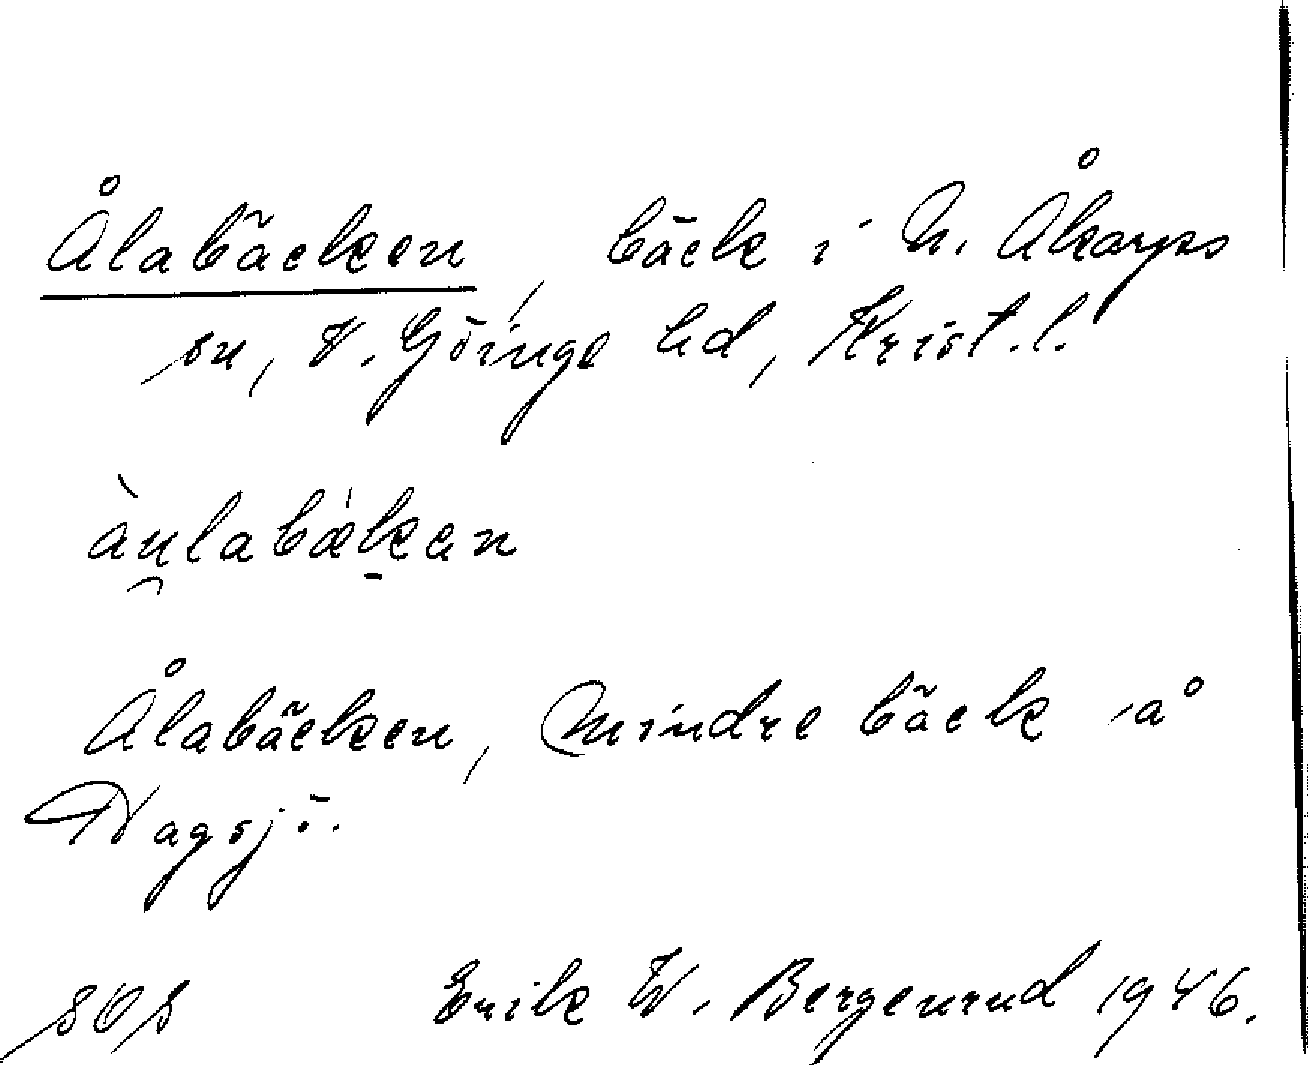 Ålabäcken, bäck i N. Åkarps
sn, V. Göinge hd, Krist. l.
àu̯labækan
Ålabäcken, mindre bäck å
Vagsjö.
Erik W. Bergenrud 1946.